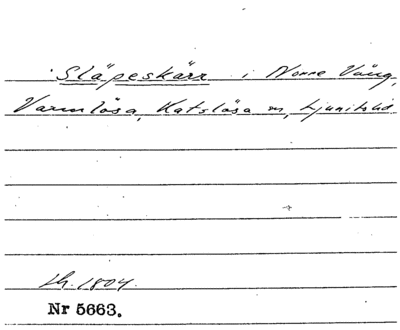 Släpeskärr i Norre Vång,
Varmlösa, Katslösa m, Ljunits hd
Sk. 1804.
Nr 5663.